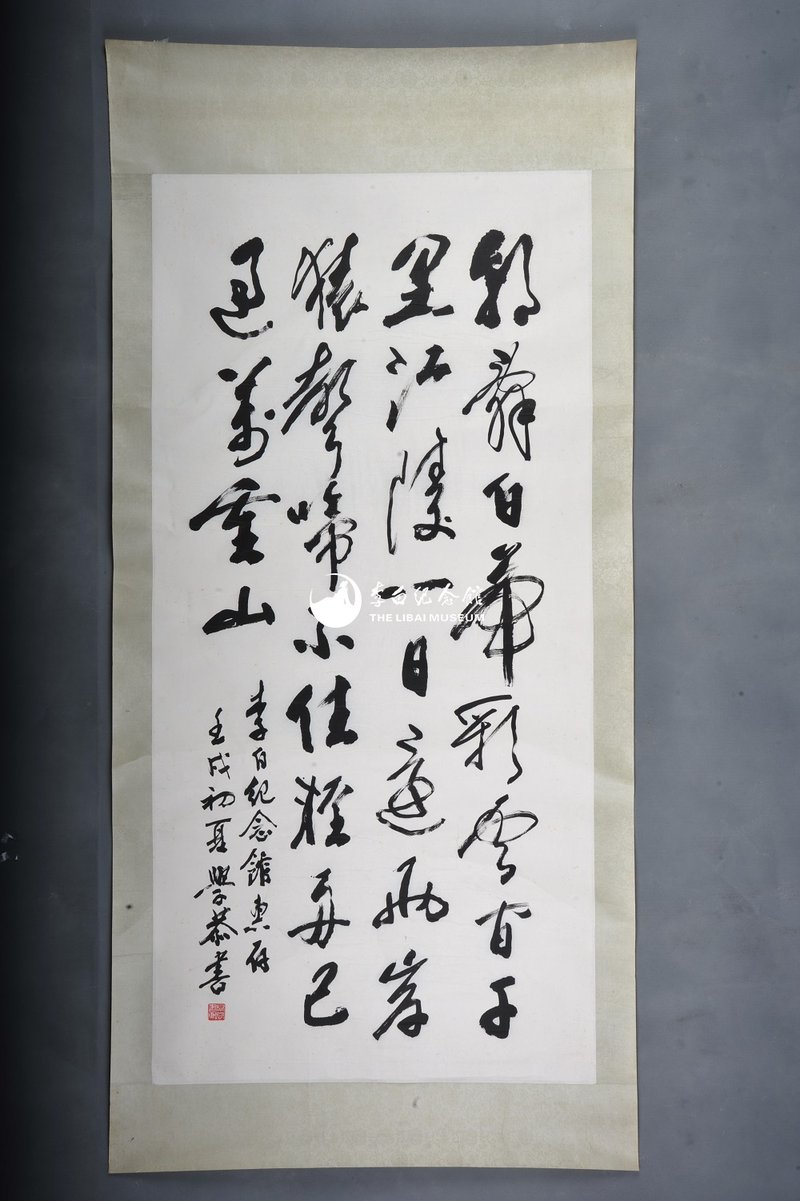 朝辭白帝彩雲間千
里江陵一日還兩岸
猿聲啼不住輕舟已
過萬重山
李白紀念館惠存
壬戌初夏學恭書
李白纪念馆
THE LIBAI MUSEUM